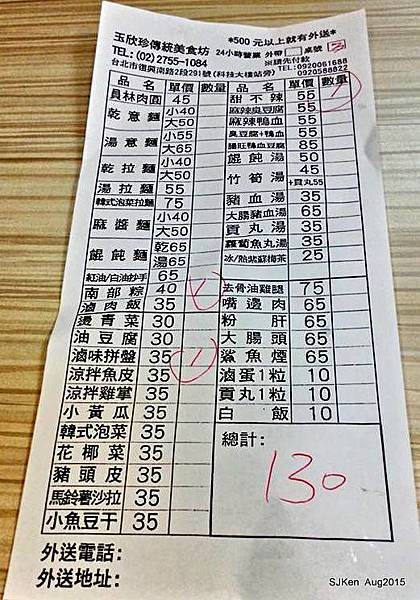 玉欣珍傳統美食坊
*500元以上就有外送*
TEL:(02)2755-1084
24小時營業 外帶 桌號
台北市復興南路2段291號(科技大樓站旁)
※請先付款
TEL:0920061688
0920588822
品名 單價 數量
員林肉圓 45
乾意麵 小40
大50
湯意麵 小55
大65
乾拉麵 小40
大50
湯拉麵 55
韓式泡菜拉麵 75
麻醬麵 小40
大50
餛飩麵 乾65
湯65
紅油/白油抄手 65
南部粽 40
滷肉飯 35
燙青菜 30
油豆腐 30
滷味拼盤 35
涼拌魚皮 35
涼拌雞掌 35
小黃瓜 35
韓式泡菜 35
花椰菜 35
豬頭皮 35
馬鈴薯沙拉 35
小魚豆干 35
品名 單價 數量
甜不辣 55
麻辣臭豆腐 55
麻辣鴨血 55
臭豆腐+鴨血 55
腸旺鴨血豆腐 85
餛飩湯 50
竹筍湯 45
+貢丸55
豬血湯 35
大腸豬血湯 65
貢丸湯 35
蘿蔔魚丸湯 35
冰/熱紫蘇梅茶 25
去骨油雞腿 75
嘴邊肉 65
粉肝 65
大腸頭 65
鯊魚煙 65
滷蛋1粒 10
貢丸1粒 10
白飯 10
總計:
130
外送電話:
外送地址:
SJKen Aug2015